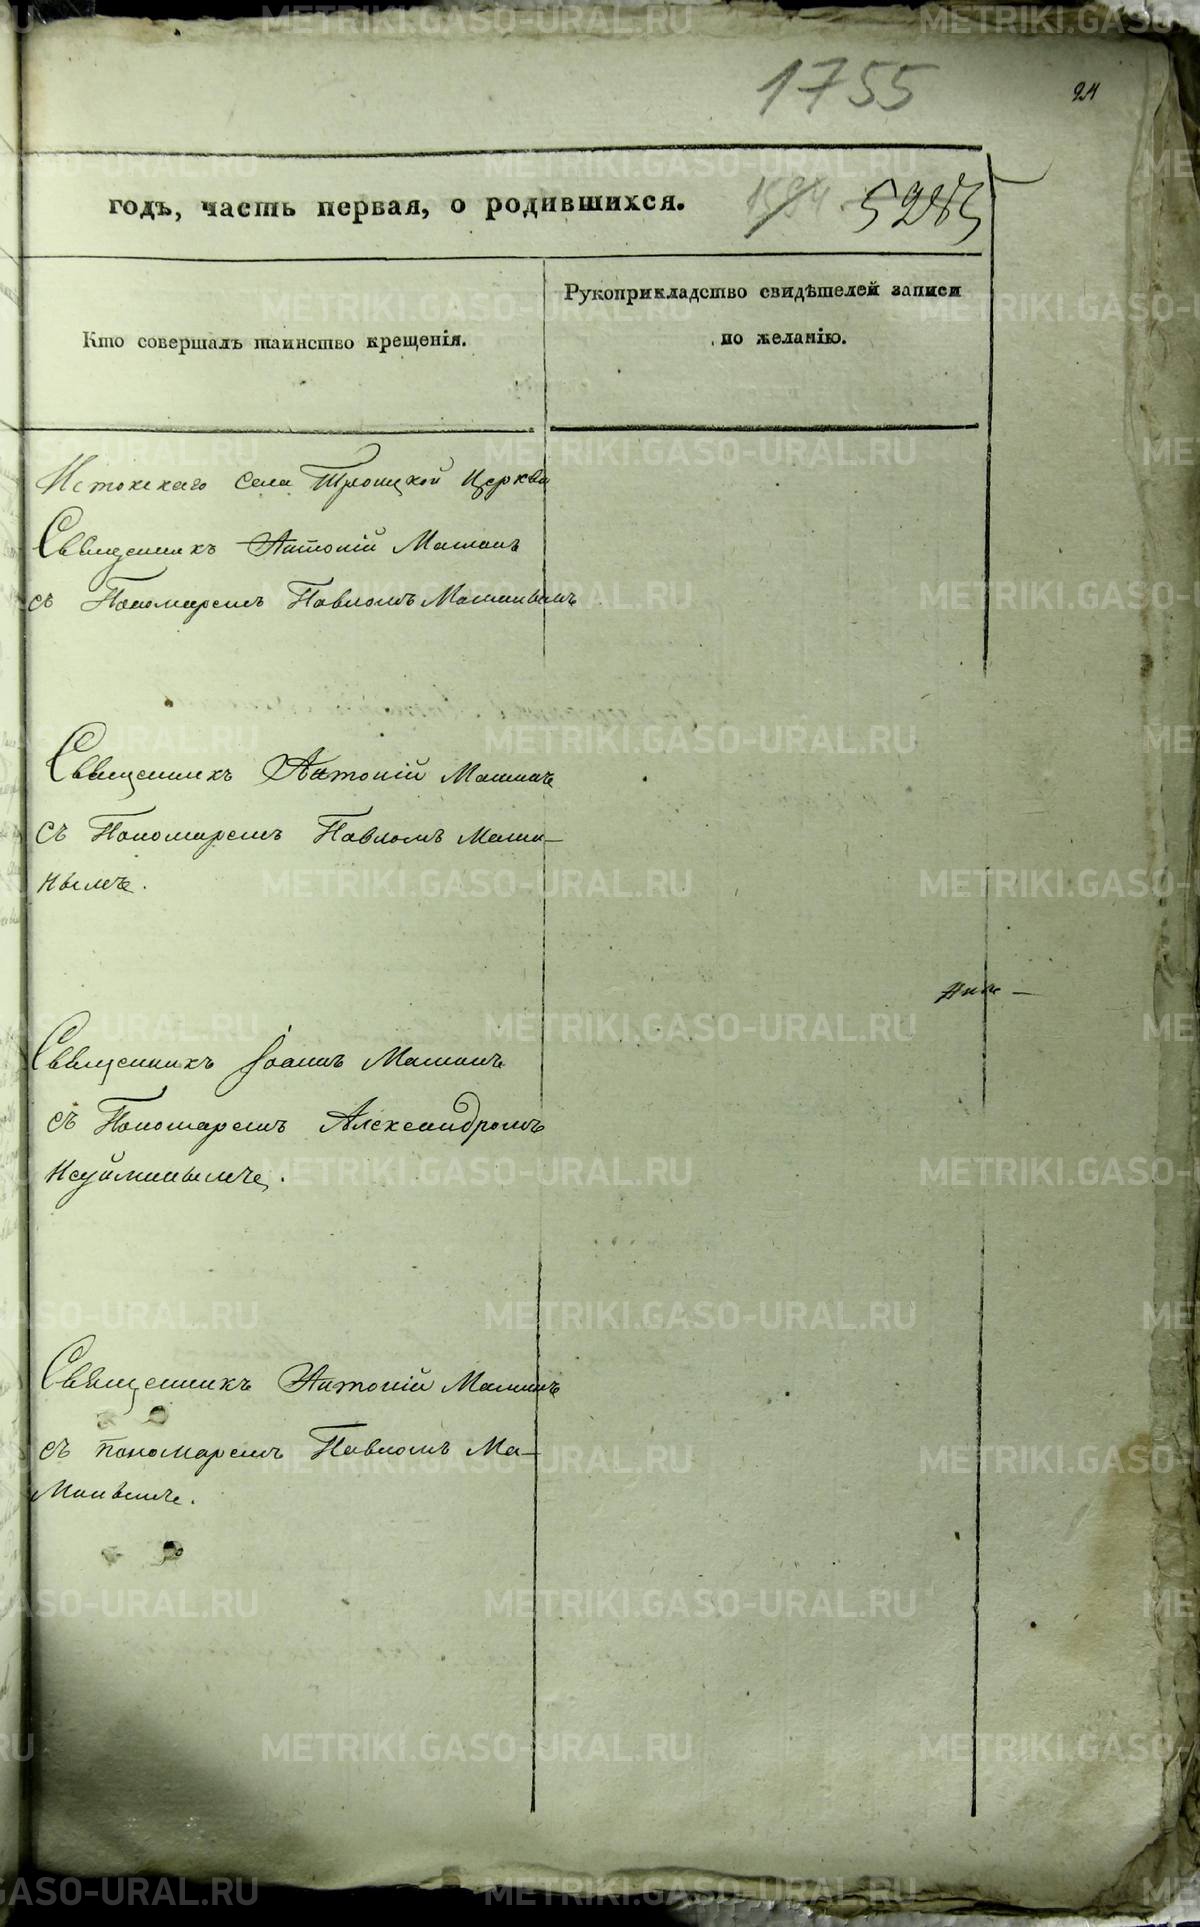 1755
24
годъ, часть первая, о родившихся.
5285
Кто совершалъ таинство крещенія.
Рукоприкладство свидѣтелей записи
по желанію.
Истокскаго села Троицкой Церкви
Священникъ Антоній Маминъ
съ Пономаремъ Павломъ Маминымъ
Священникъ Антоній Маминъ
съ Пономаремъ Павломъ Мами-
нымъ.
Священникъ Іоаннъ Маминъ
съ Пономаремъ Александромъ
Неуйминымъ.
Священникъ Антоній Маминъ
съ пономаремъ Павломъ Ма-
минымъ.
METRIKI.GASO-URAL.RU